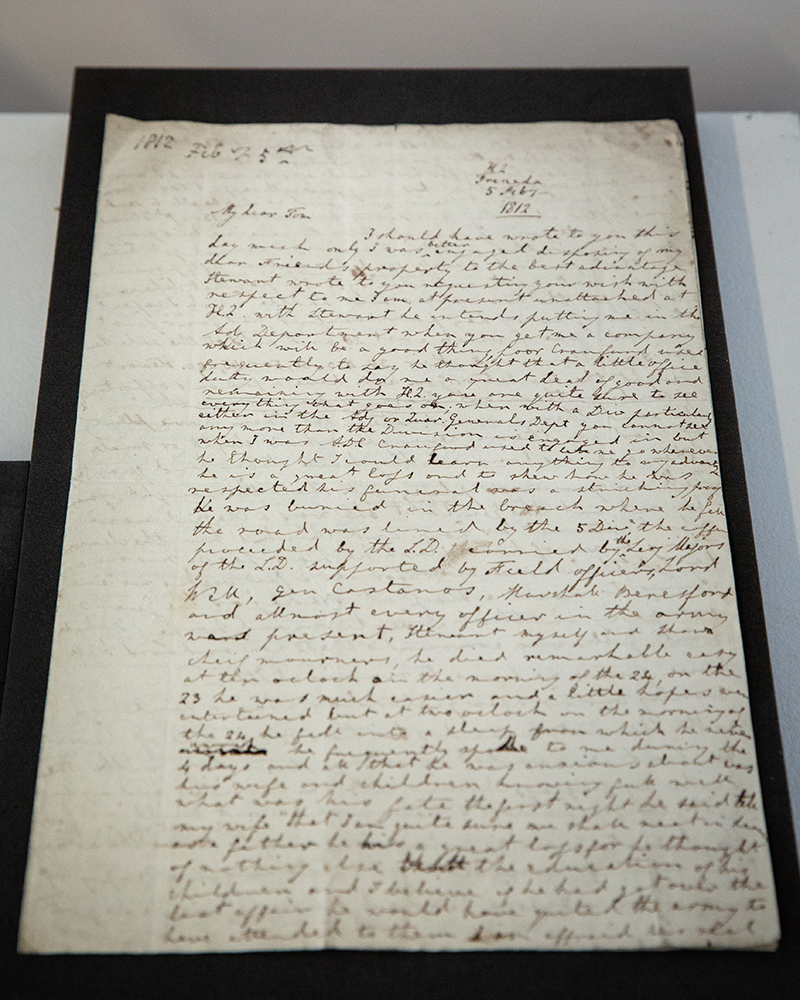 1812 Feby 5
HQ
Frenada
5 Feby
1812
My dear Tom
I should have wrote to you this
day week only I was better engaged disposing of my
dear Friends property to the best advantage
Stewart wrote to you requesting your wish with
respect to me I am at present unattached at
HQ. with Stewart he intends putting me in the
Adj. Department when you get me a company
which will be a good thing poor Craufurd used
frequently to say he thought that a little office
duty would do me a great deal of good and
remaining with HQ you are quite sure to see
everything that goes on, when with a Div particularly
either in the Adj or Quar. Generals Dept you cannot see
any more than the Division is engaged in but
when I was ADC Craufurd used to take me wherever
he thought I would learn anything to my advantage
he is a great loss and to shew how he was
respected his funeral was a striking proof
he was buried in the breach where he fell
the road was lined by the 5 Div. the coffin
preceeded by the L.D. carried by the Serj Majors
of the L.D. supported by Field officers, Lord
Wn, Gen Castanos, Marshal Beresford
and allmost every officer in the army
was present, Stewart myself and Shaw
cheif mourners, he died remarkable easy
at ten oclock in the morning of the 24, on the
23 he was much easier and a little hopes were
entertained but at two oclock on the morning of
the 24 he fell into a sleep from which he never
he frequently spoke to me during the
4 days and all that he was ansious about was
his wife and children knowing full well
what was his fate the first night he said tell
my wife that I am quite sure we shall meet in
as a father he is a great loss for he thought
of nothing else but the education of his
children and I believe if he had got over the
last affair he would have quited the army to
have attended to them I am afraid he is not